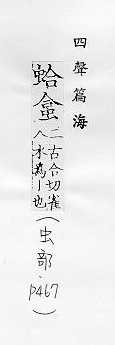 四聲篇海
蛤
二古合切雀
入水為丨也
(虫部.p467)